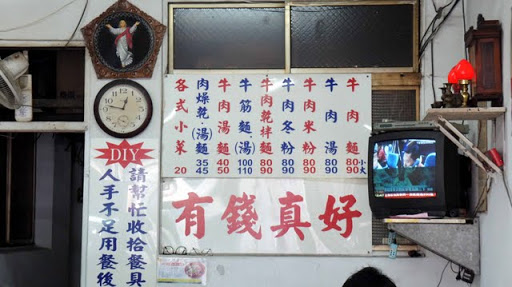 牛肉麵 80 90 小 大
牛肉湯 80 90
牛肉米粉 80 90
牛肉冬粉 80 90
牛肉乾拌麵 80 90
牛筋麵(湯) 100 110
牛肉湯麵 40 50
肉燥乾(湯)麵 35 45
各式小菜 20
有錢真好
DIY
人手不足用餐後
請幫忙收拾餐具